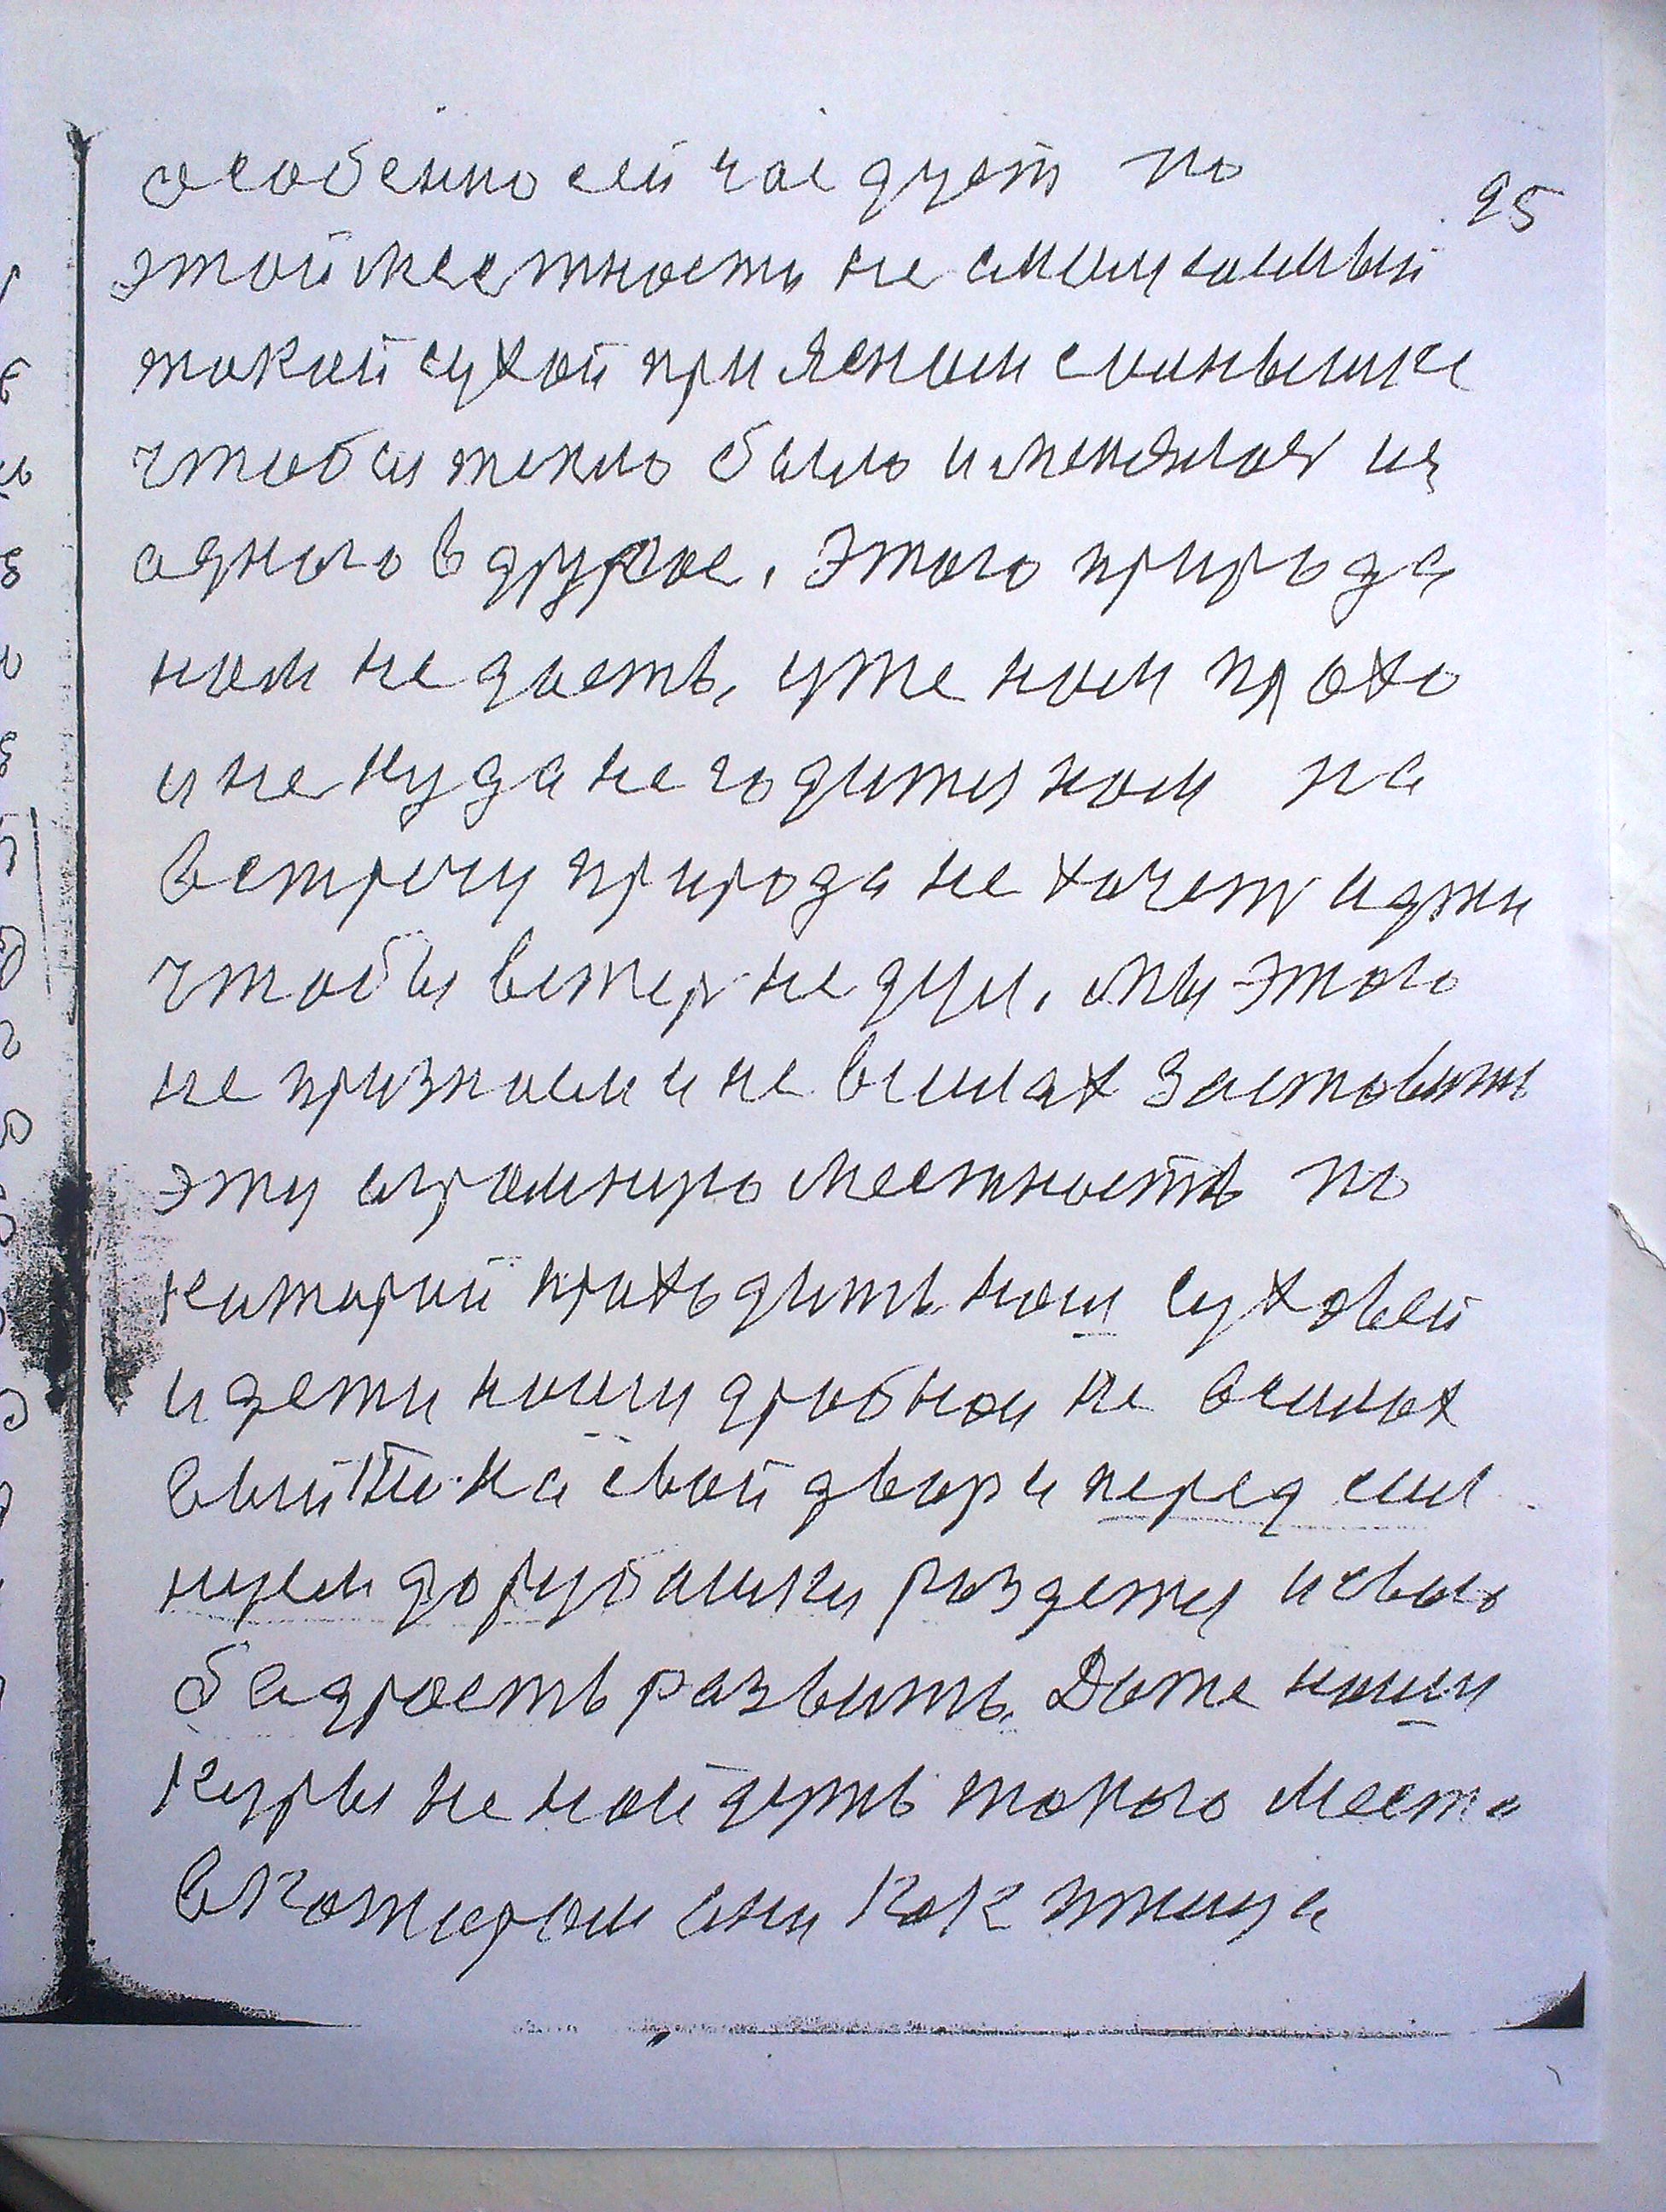 особенно сей час дует по
95
этой местность не
такой сухой при ясном солнышке
чтобы тепло было и менялось из
одного в другое. Этого природа
нам не даеть, уже нам плохо
и не куда не годится нам на
встречу природа не хочет идти
чтобы ветер не дул. Мы этого
не признаем и не в силах заставить
эту огромную местность по
которой проходить наш суховей
и дети наши дробной не в силах
выйти на свой двор и перед сол
нцем до рубашки раздется и свою
бадрость развить. Даже наши
куры не найдуть такого места
в котором они как птица